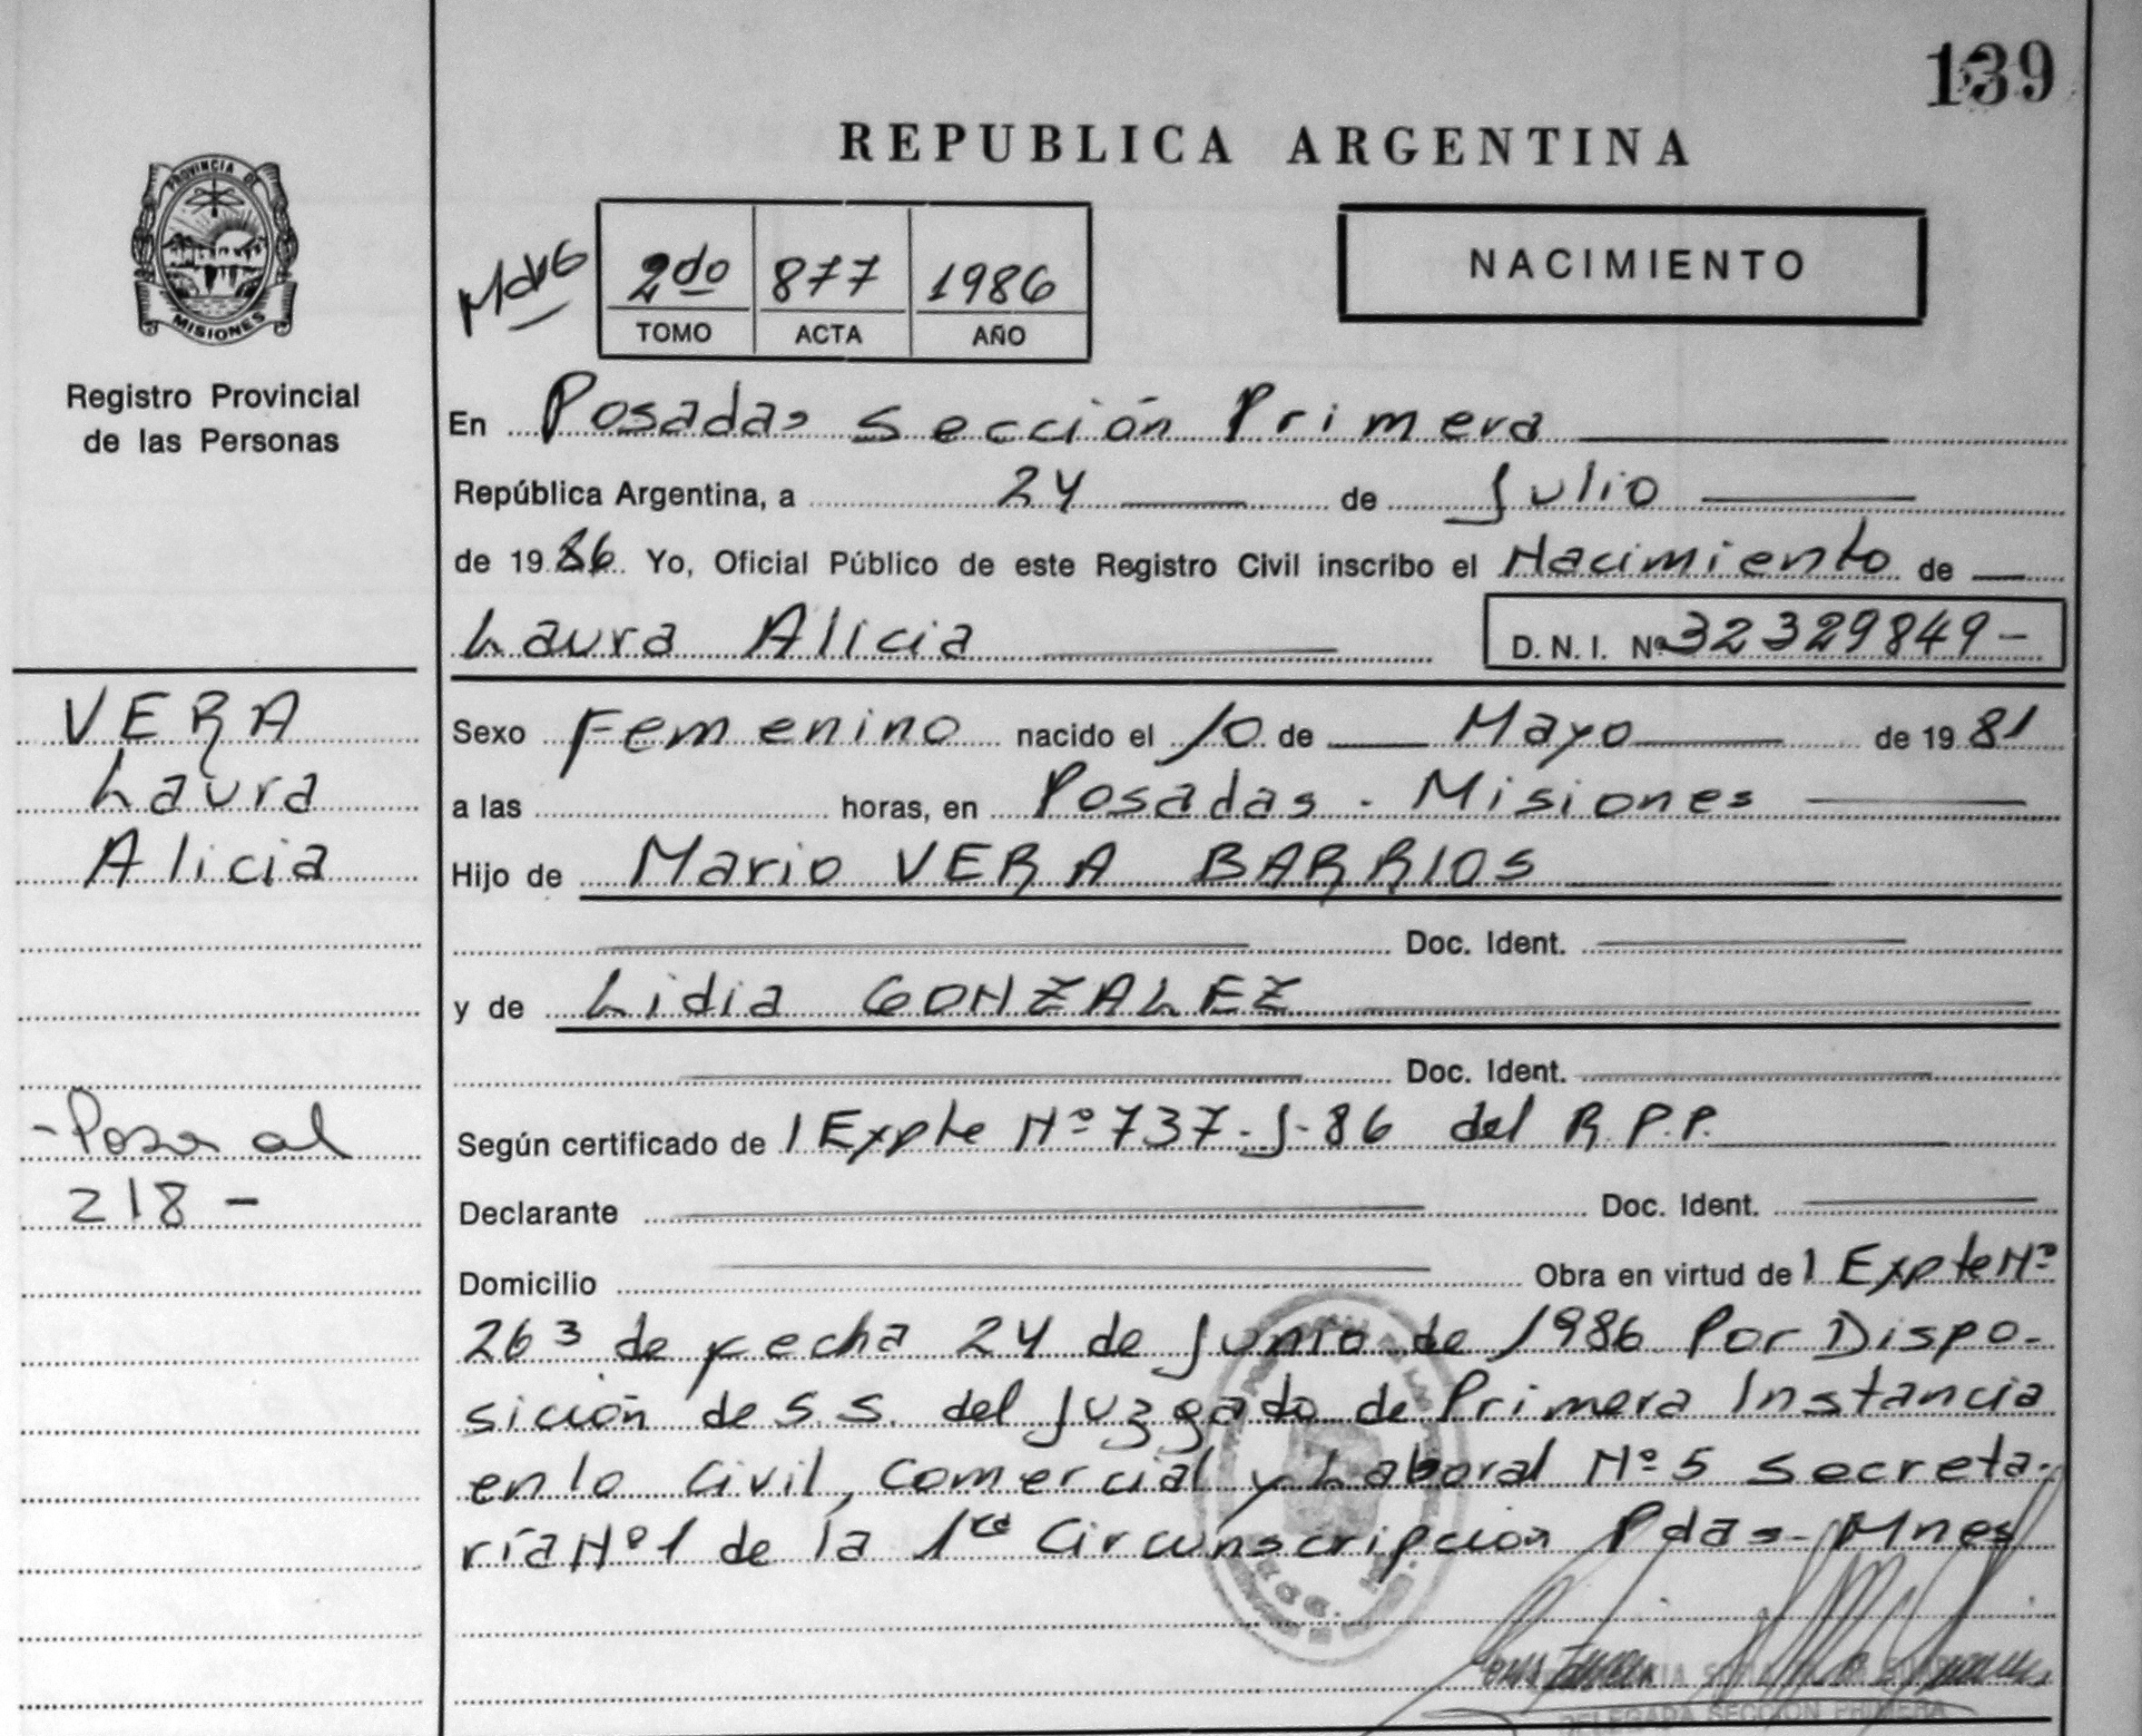 139
REPUBLICA ARGENTINA
PROVINCIA DE
MISIONES
Registro Provincial
de las Personas
2do 877 1986
TOMO ACTA AÑO
NACIMIENTO
En Posadas sección Primera
República Argentina, a 24 de Julio
de 19 86 Yo, Oficial Público de este Registro Civil inscribo el Nacimiento de
Laura Alicia D. N. I. Nº 32329849-
VERA
Laura
Alicia
Sexo Femenino nacido el 10 de Mayo de 19 81
a las horas, en Posadas - Misiones
Hijo de Mario VERA BARRIOS
Doc. Ident.
y de Lidia GONZALEZ
Doc. Ident.
- Pasa al
218 -
Según certificado de 1 Expte Nº 737-J-86 del R.P.P.
Declarante Doc. Ident.
Domicilio Obra en virtud de 1 Expte Nº
263 de fecha 24 de Junio de 1986 Por Dispo-
sición de S.S. del Juzgado de Primera Instancia
en lo Civil, Comercial y Laboral Nº 5 secreta-
ría Nº 1 de la 1ra Circunscripción Pdas - Mnes
DELEGADA SECCION PRIMERA